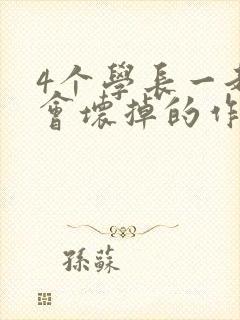 4个學長一
會壞掉的作
孫蘇